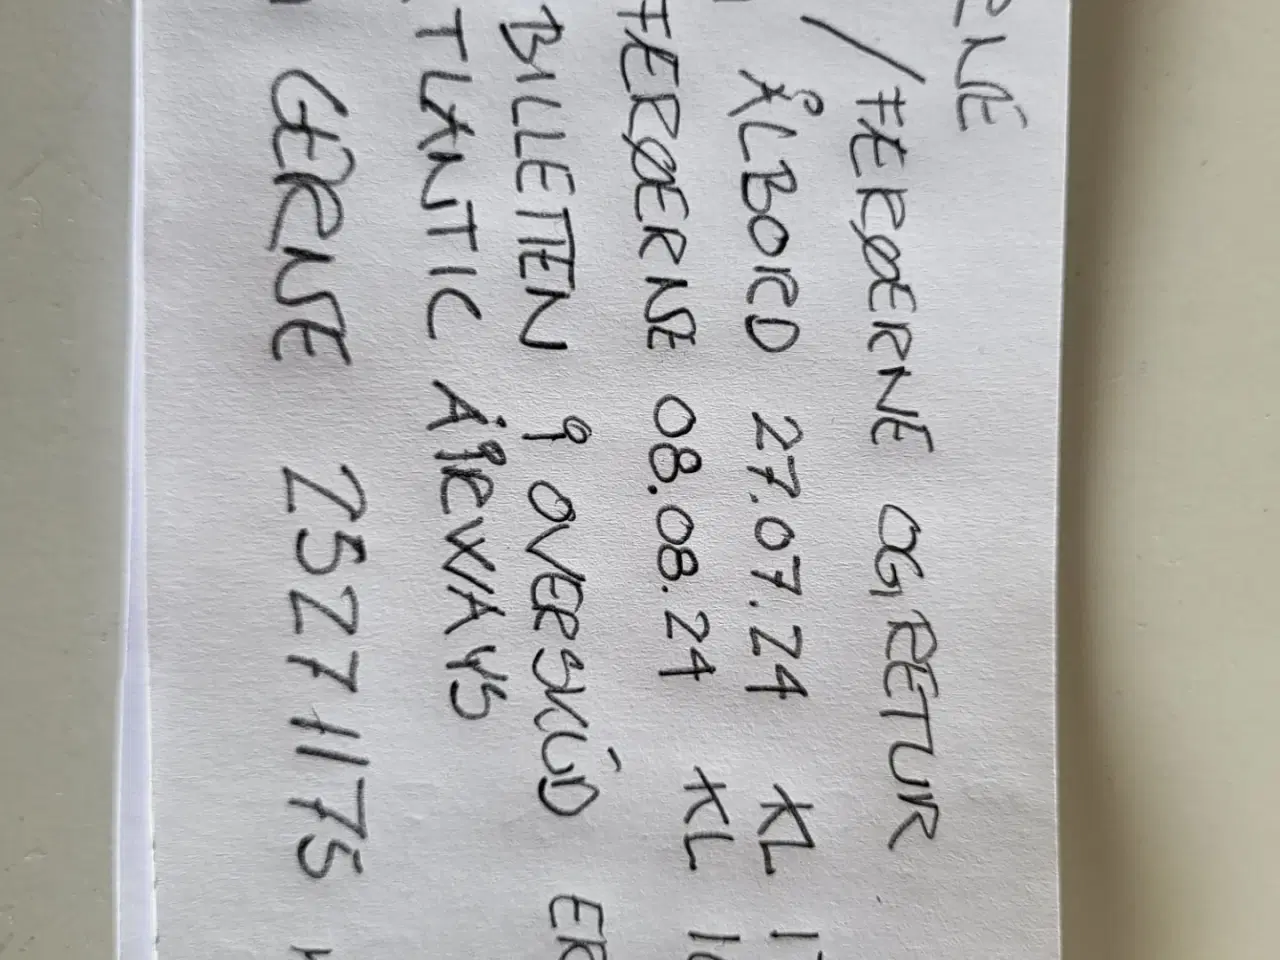 RNE
/FERØERNE OG RETUR
ÅLBORD 27.07.24 KL 1
FERØERNE 08.08.24 KL 10
BILLETTEN I OVERSKÚD ER
TLANTIC ÅIRWAYS
GERNE 25271175